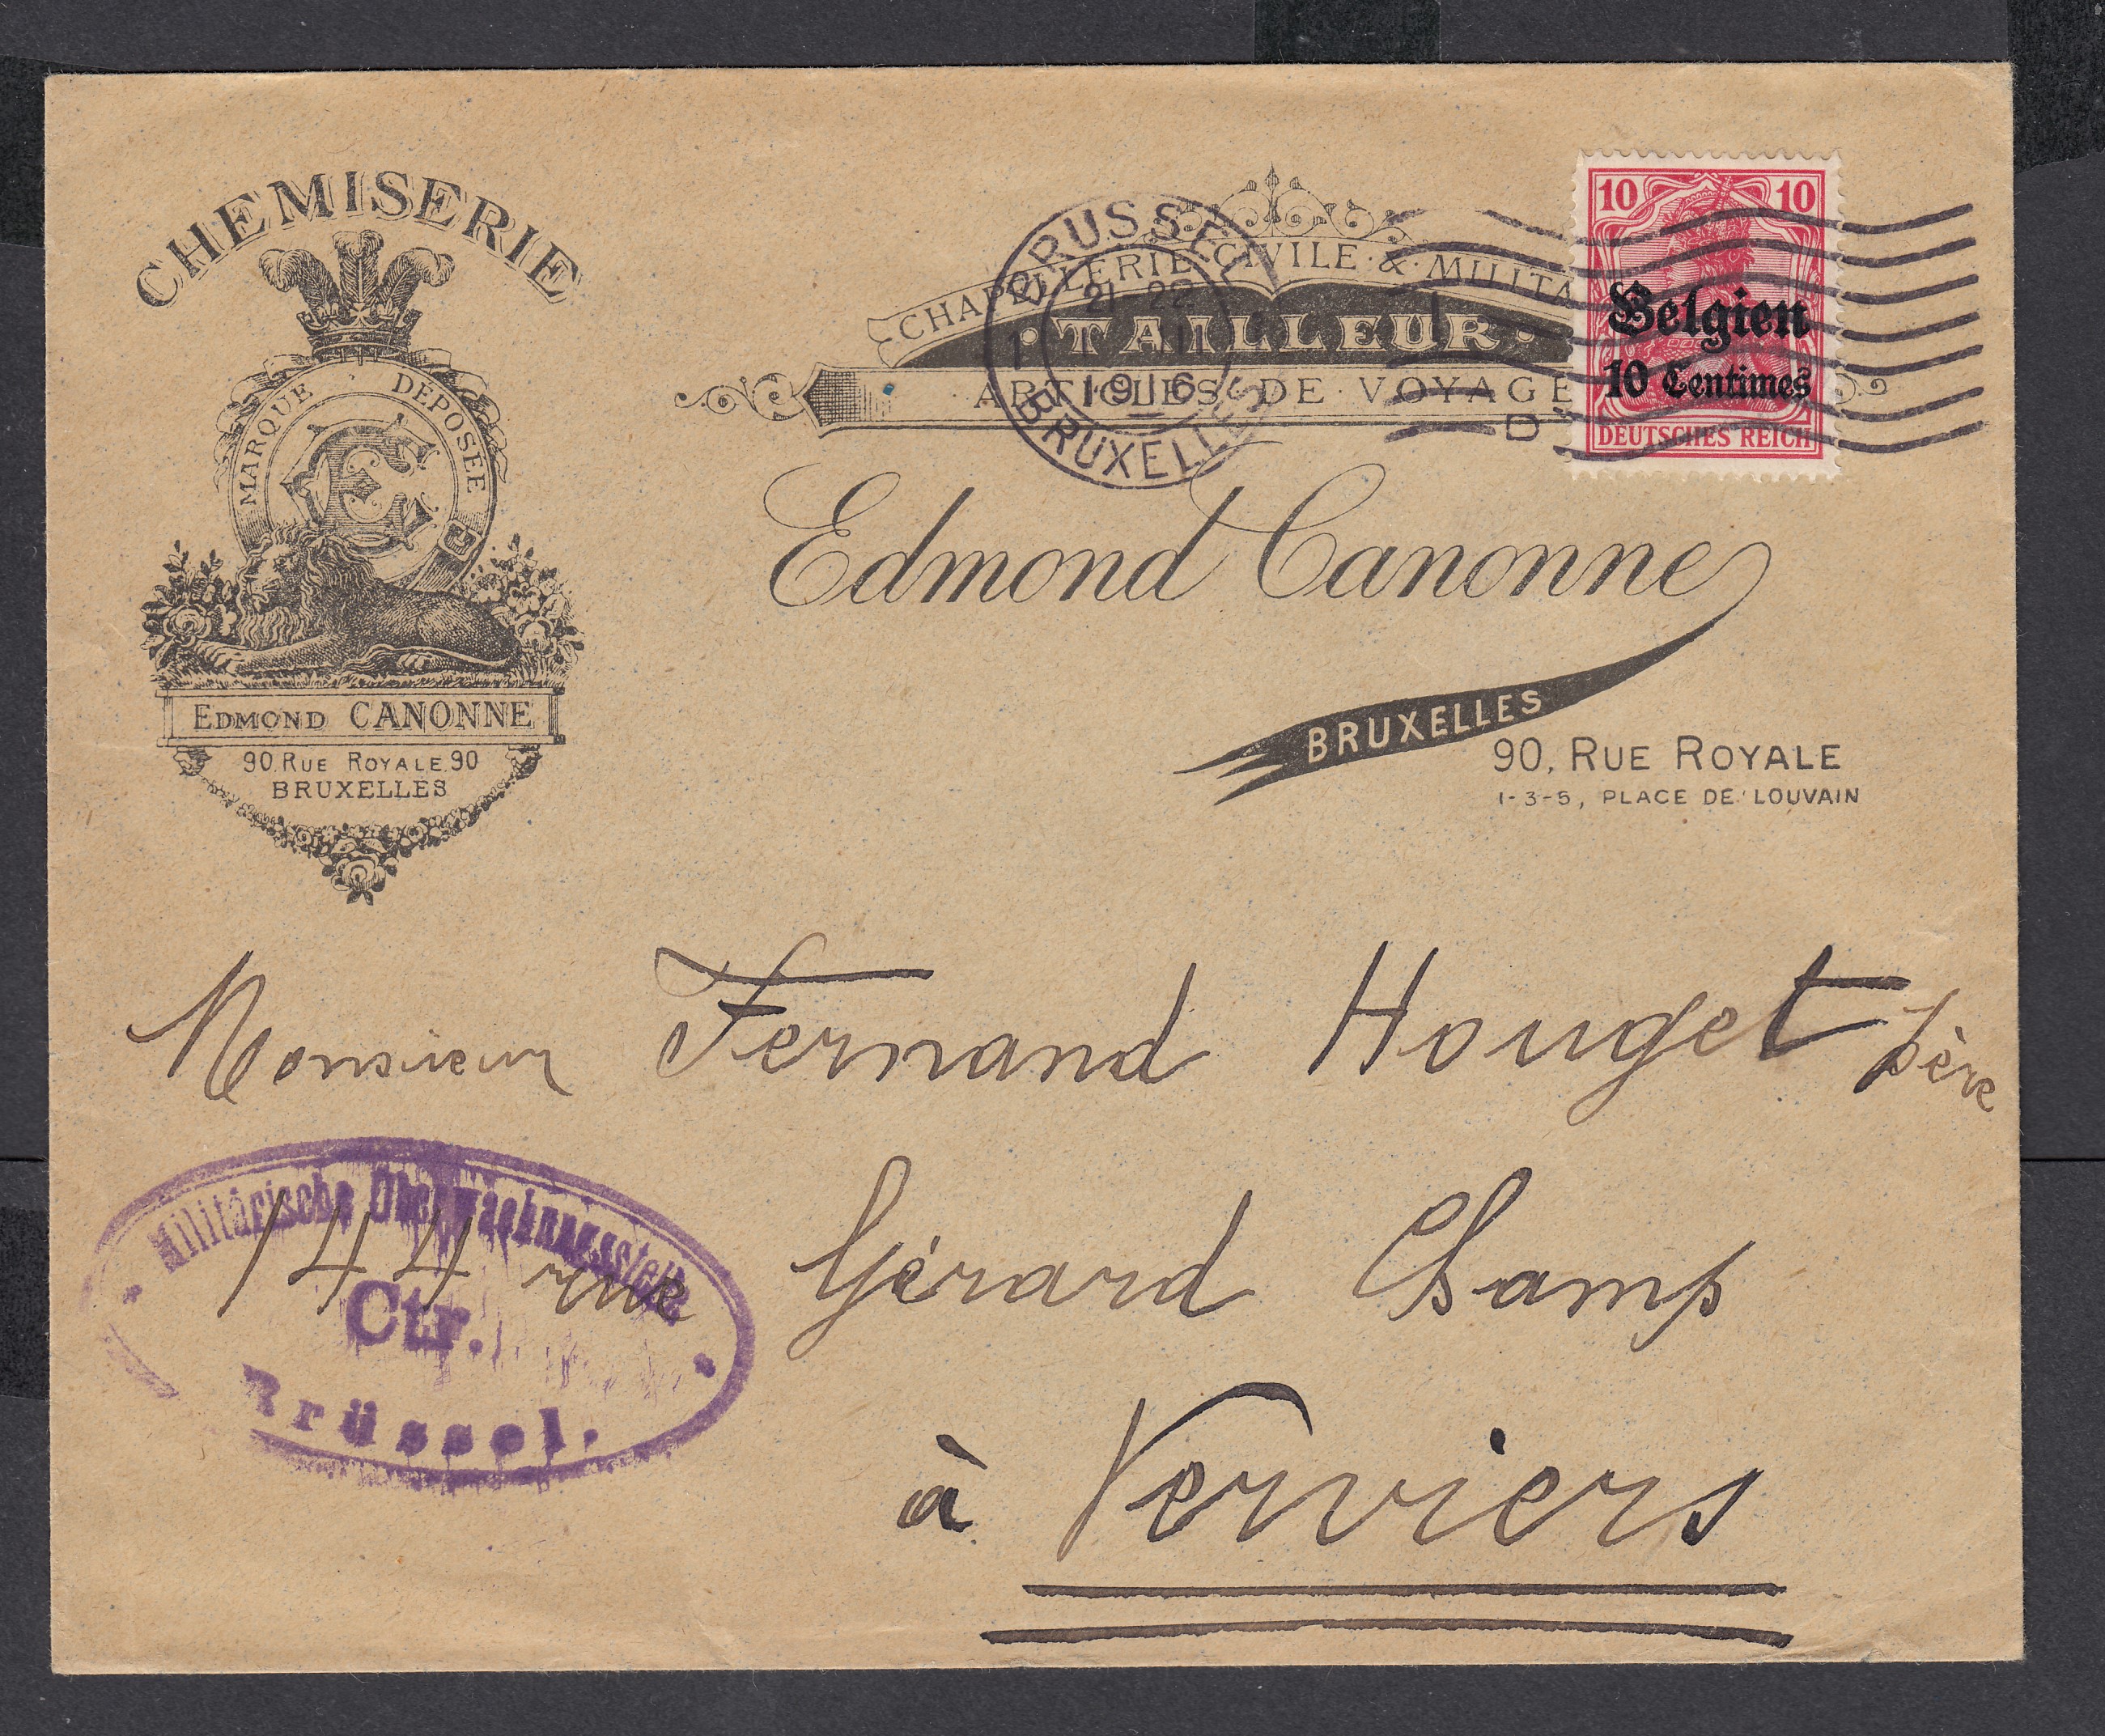 CHEMISERIE
MARQUE DÉPOSÉE
EC
EDMOND CANONNE
90, RUE ROYALE, 90
BRUXELLES
CHAPELLERIE CIVILE & MILITA
· TAILLEUR ·
ARTICLES · DE · VOYAGE
Edmond Canonne
BRUXELLES
90, RUE ROYALE
1-3-5, PLACE DE LOUVAIN
BRUSSEL
1
21-22
1 II
1916
BRUXELLES
1
D
10 10
Belgien
10 Centimes
DEUTSCHES REICH
Monsieur Fernand Houget père
144 rue Gérard Champ
à Verviers
Militärische Überwachungsstelle
Ctr.
Brüssel.